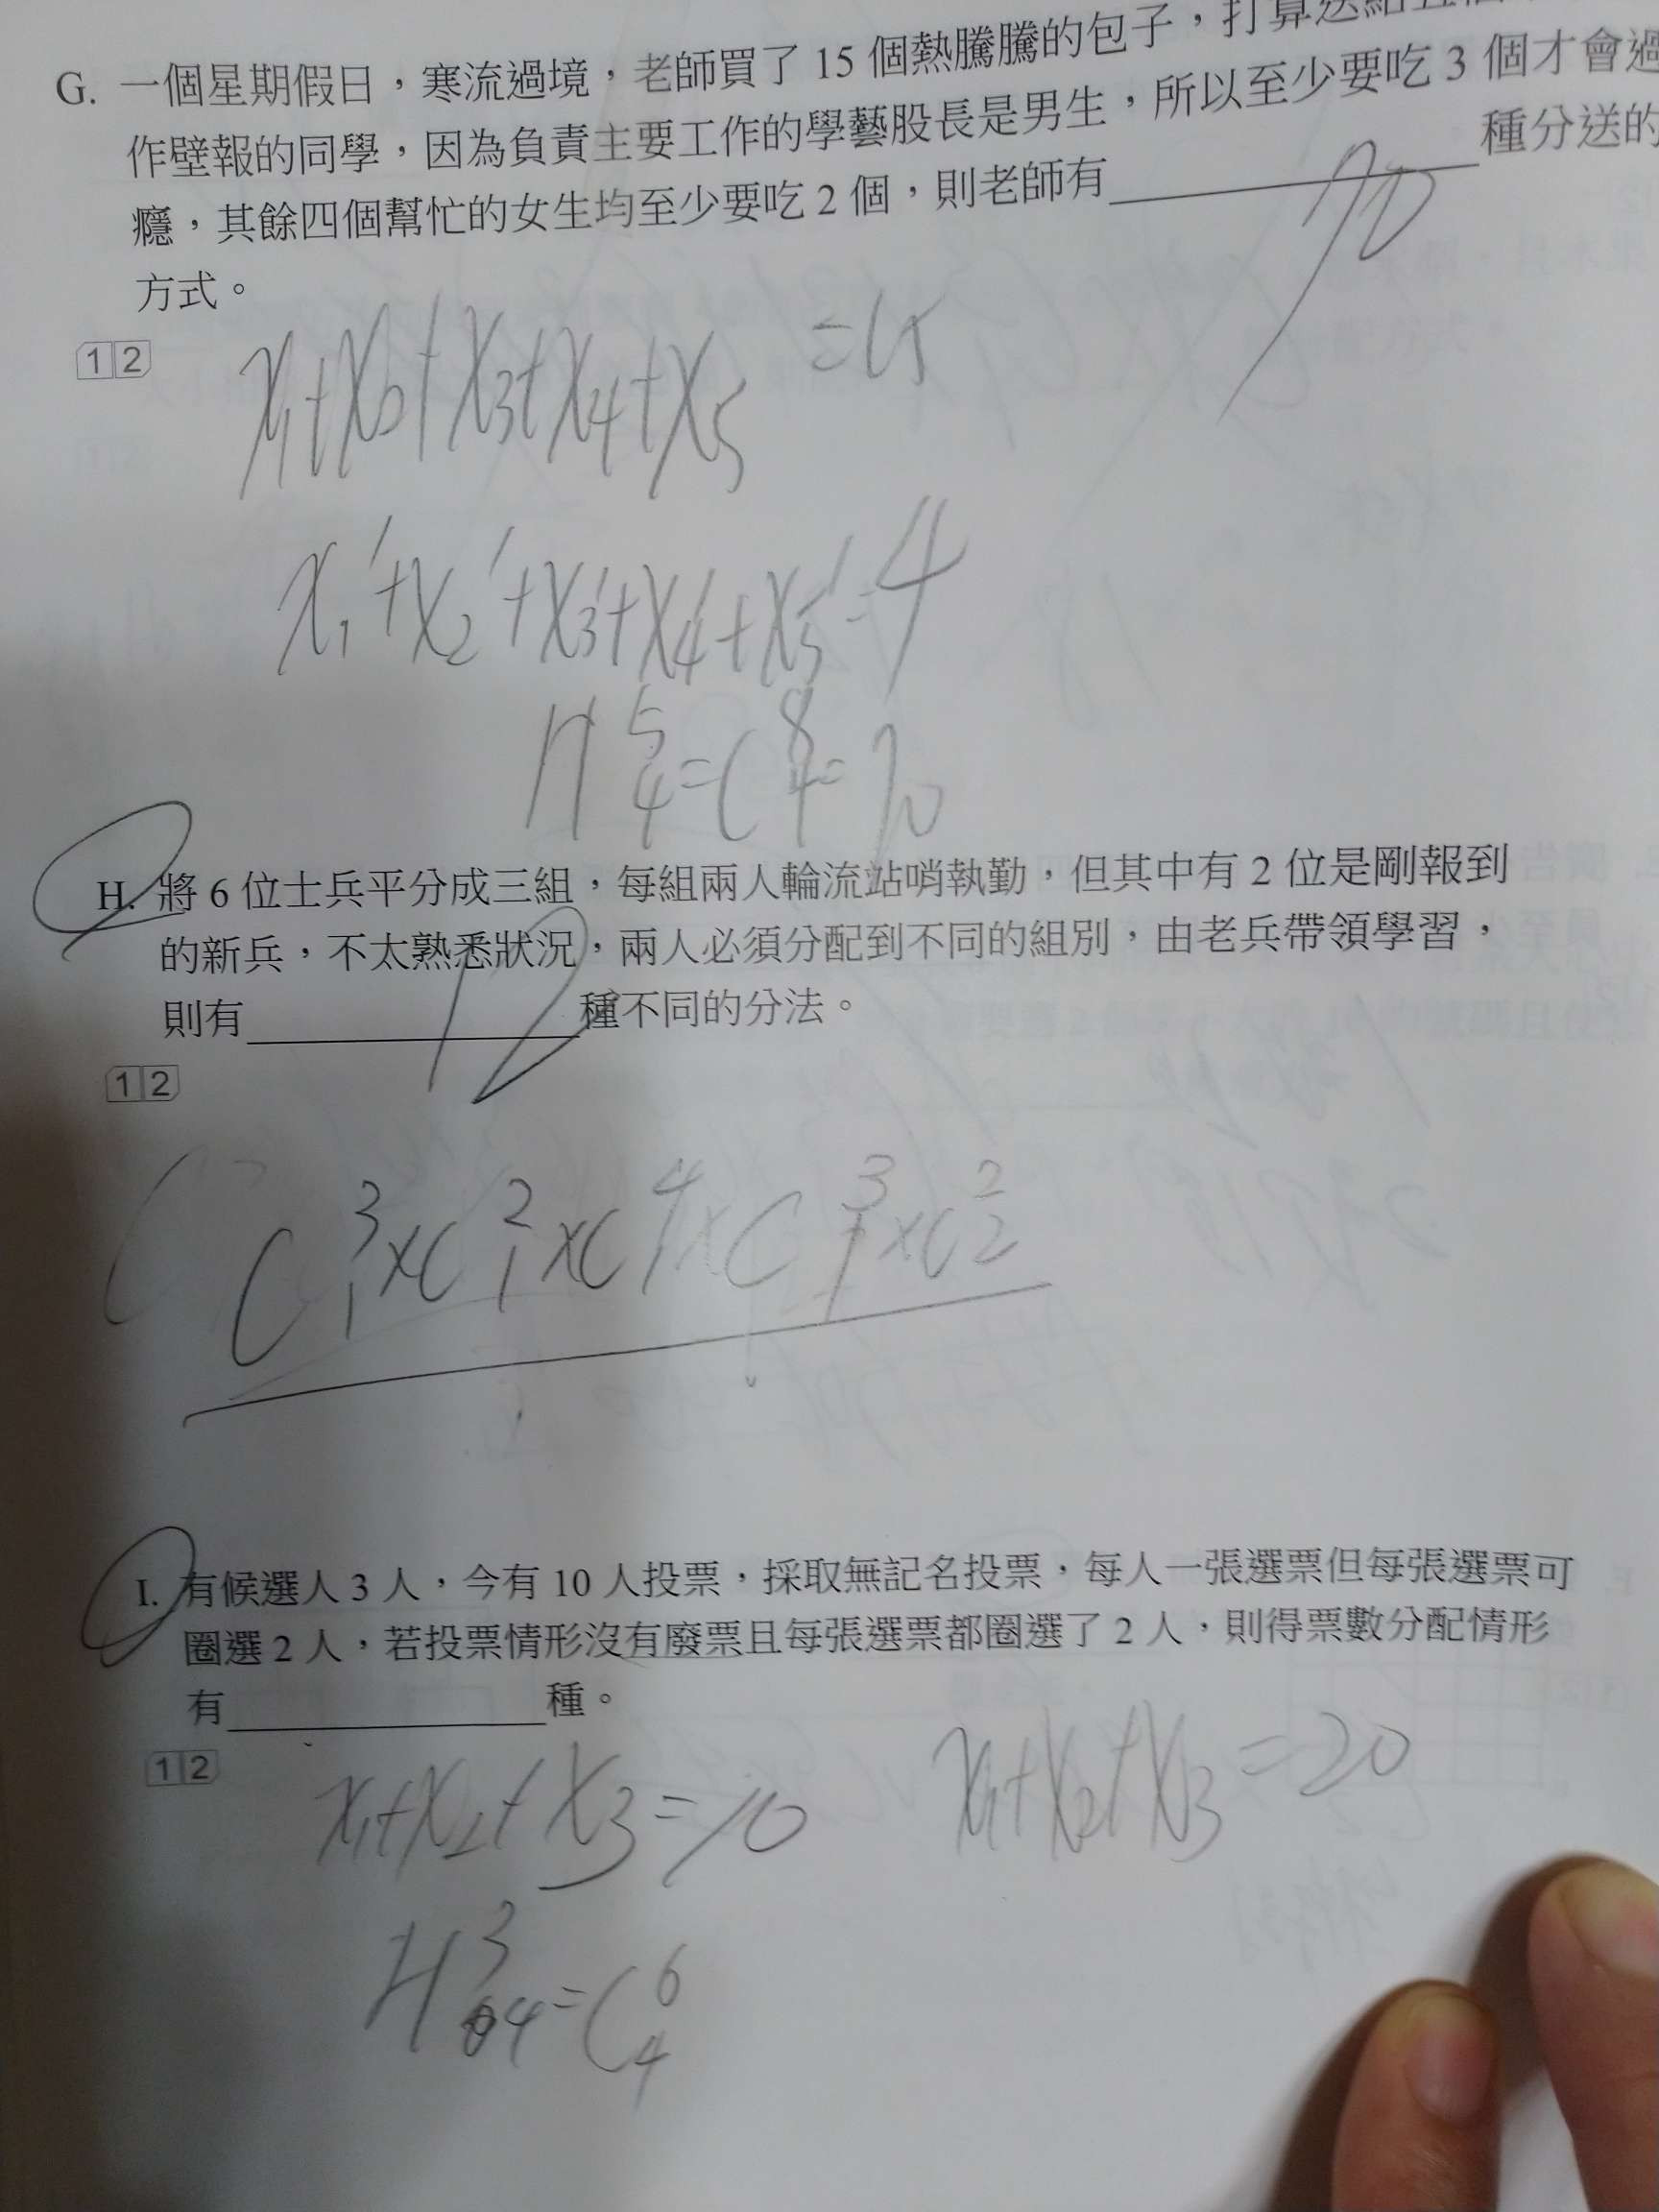 G. 一個星期假日，寒流過境，老師買了 15 個熱騰騰的包子，打算送給五個
作壁報的同學，因為負責主要工作的學藝股長是男生，所以至少要吃 3 個才會過
癮，其餘四個幫忙的女生均至少要吃 2 個，則老師有 70 種分送的
方式。
12
x₁+x₂+x₃+x₄+x₅=15
x₁'+x₂'+x₃'+x₄'+x₅'=4
H⁵₄=C⁸₄=70
H. 將 6 位士兵平分成三組，每組兩人輪流站哨執勤，但其中有 2 位是剛報到
的新兵，不太熟悉狀況，兩人必須分配到不同的組別，由老兵帶領學習，
則有 12 種不同的分法。
12
C³₁×C²₁×C⁴₁×C³₁×C²₂
I. 有候選人 3 人，今有 10 人投票，採取無記名投票，每人一張選票但每張選票可
圈選 2 人，若投票情形沒有廢票且每張選票都圈選了 2 人，則得票數分配情形
有 種。
12
x₁+x₂+x₃=10 x₁+x₂+x₃=20
H³₄=C⁶₄